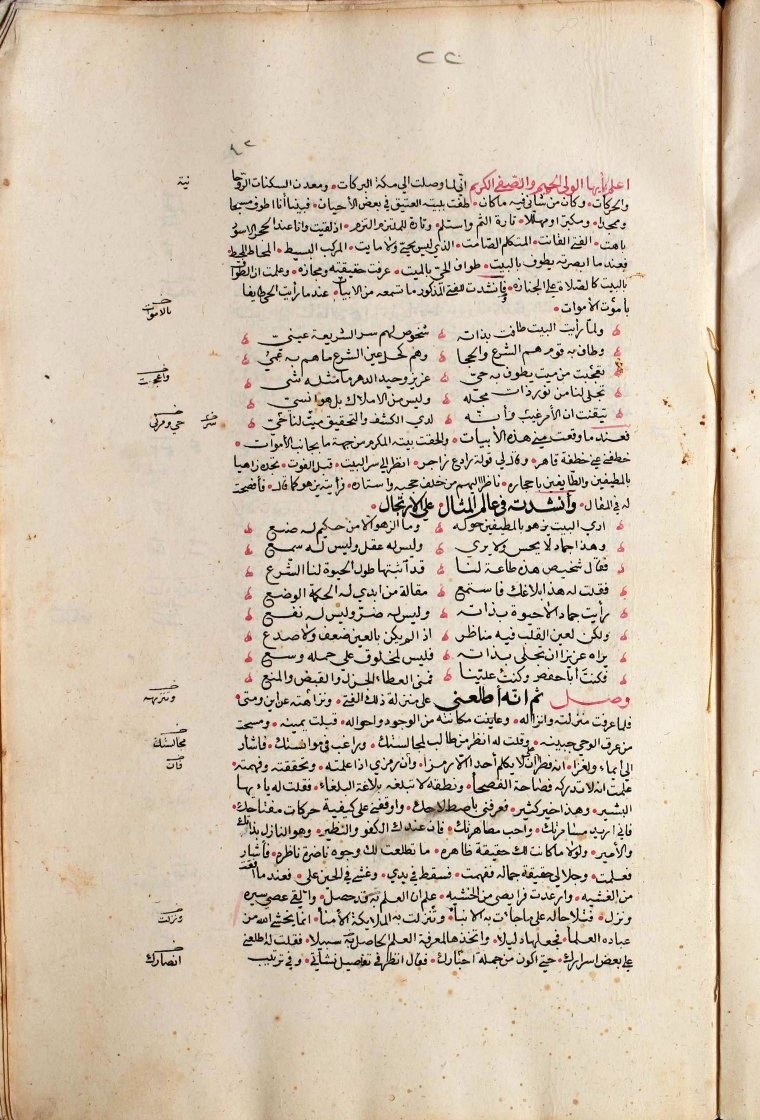 اعلم أيها الولي الحميم والصفي الكريم اني لما وصلت الى مكة البركات ومعدن السكنات الروحا
نية
والحركات وكان من شاني فيه ما كان طفت ببيته العتيق في بعض الأحيان فبينا أنا اطوف مسبحا
وممجدا ومكبرا ومهللا تارة الثم واستلم وتارة للملتزم التزم اذ لقيت وانا عند الحجر الاسود
باهت الفتى الفائت المتكلم الصامت الذي ليس بحي ولا مايت المركب البسيط المحاط المحيط
فعندما ابصرته يطوف بالبيت طواف الحي بالميت عرفت حقيقته ومجازه وعلمت ان الطواف
بالبيت كالصلاة على الجنازة فانشدت الفتى المذكور ما تسمعه من الابيات عندما رأيت الحي طايفا
بالاموات
بأموت الأموات
ولما رأيت البيت طافت بذاته شخوص لهم سر الشريعة عيني
وطاف به قوم هم الشرع والحجا وهم كحل عين الشرع ما هم به عمي
تعجبت من ميت يطوف به حي عزيز وحيد الدهر ما مثله شي
واعجبت
تجلى لنا من نور ذات محله وليس من الاملاك بل هو انسي
تيقنت ان الامر غيب وأنه لدى الكشف والتحقيق ميت لنا حي
حي ومرئي
فعندما وقعت مني هذه الأبيات والحقت بيته المكرم من جهة ما بجانب الأموات
خطفني عني خطفة قاهر وقال لي قولة رادع زاجر انظر الى سر البيت قبل الفوت تجده زاهيا
بالمطيفين والطايفين باحجاره ناظرا اليهم من خلف حجبه واستاره فرأيته يزهو كما قال فافصحت
له في المقال وأنشدت في عالم المثال على الارتجال
ارى البيت يزهو بالمطيفين حوله وما الزهو الا من حكيم له صنع
وهذا جماد لا يحس ولا يرى وليس له عقل وليس له سمع
فقال شخيص هذه طاعة لنا قد أثبتها طول الحيوة لنا الشرع
فقلت له هذا بلاغك فاستمع مقالة من ابدى له الحكمة الوضع
رأيت جمادا لا حيوة بذاته وليس له ضر وليس له نفع
ولكن لعين القلب فيه مناظر اذا لم يكن بالعين ضعف ولا صدع
يراه عزيزا ان تجلى بذاته فليس لمخلوق على حمله وسع
فكنت أبا حفص وكنت علينا فمني العطاء الجزل والقبض والمنع
وصل ثم انه أطلعني على منزلة ذلك الفتى ونزاهته عن اين ومتى
وتنزيهه
فلما عرفت منزلته وانزاله وعاينت مكانته من الوجود واحواله قبلت يمينه ومسحت
من عرق الوحي جبينه وقلت له انظر من طالب لمجالستك وراغب في موانستك فاشار
مجالستك
الى ايماء ولغزا انه فطر ان لا يكلم أحد الا رمزا وان رمزي اذا علمته وتحققته وفهمته
فان
علمت انه لا تدركه فصاحة الفصحا ونطقه لا تبلغه بلاغة البلغاء فقلت له يا ايها
البشير وهذا خير كثير فعرفني باصطلاحك واوقفني على كيفية حركات مفتاحك
فاني اريد مسامرتك واحب مصاهرتك فان عندك الكفو والنظير وهو النازل بذاتك
والأمير ولولا ما كانت لك حقيقة ظاهره ما تطلعت لك وجوه ناضرة ناظره فأشار
فعلمت وجلا لي حقيقة جماله فهمت فسقط في يدي وغشي في الحين علي فعندما افقت
من الغشيه وارعدت فرايصي من الخشيه علم ان العلم به قد حصل وألقى عصى سيره
ونزل فتلا حاله علي ما جاءت به الانبا وتنزلت به الملائكة الأمنا انما يخشى الله من
ونزلت
عباده العلما فجعلها دليلا واتخذها لمعرفة العلم الحاصل به سبيلا فقلت له اطلعني
على بعض اسرارك حتى اكون من جملة احبارك فقال انظر في تفاصيل نشأتي وفي ترتيب
انصارك